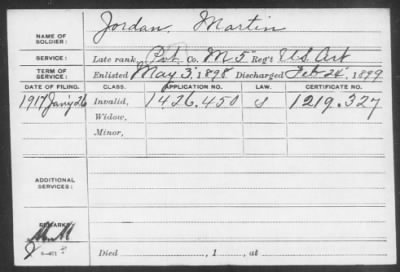 Jordan, Martin
NAME OF SOLDIER:
SERVICE: Late rank, Pvt. Co. M 5" Reg't U.S. Art
TERM OF SERVICE: Enlisted May 3, 1898 Discharged Feb 24, 1899
DATE OF FILING. CLASS. APPLICATION NO. LAW. CERTIFICATE NO.
1917 Jan'y 26 Invalid, 1426.450 1219.327
Widow,
Minor,
ADDITIONAL SERVICES:
REMARKS:
Died , 1 , at